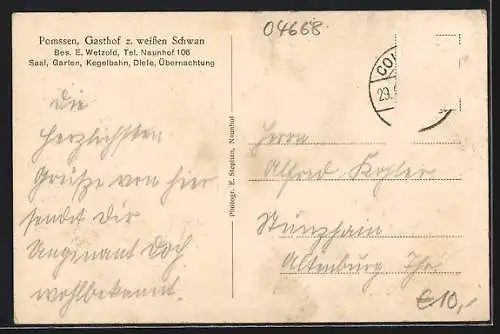 Pomssen, Gasthof z. weißen Schwan
Bes. E. Wetzold, Tel. Naunhof 106
Saal, Garten, Kegelbahn, Diele, Übernachtung
04668
CO
29.
Die
herzlichsten
Grüße von hier
sendet Dir
Ungenant doch
wohlbekannt.
Photogr. E. Stephan, Naunhof
Herrn
Alfred
Stünzhain
Altenburg Thr
€10,-